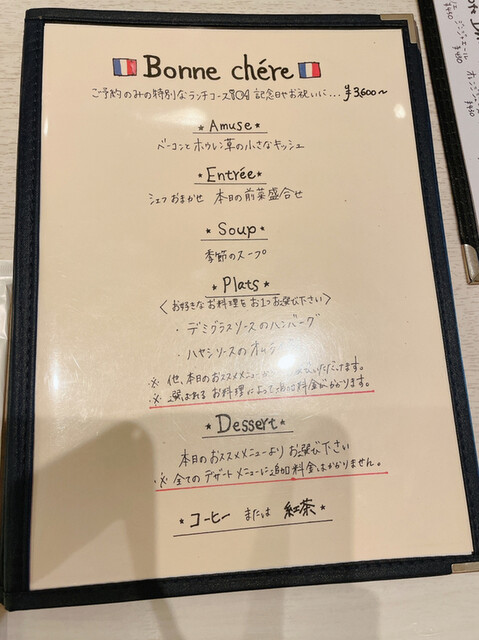 Bonne chére
ご予約のみの特別なランチコース 記念日やお祝いに... ¥3,600〜
* Amuse *
ベーコンとホウレン草の小さなキッシュ
* Entrée *
シェフおまかせ 本日の前菜盛合せ
* Soup *
季節のスープ
* Plats *
〈お好きなお料理をお1つお選び下さい〉
・デミグラスソースのハンバーグ
・ハヤシソースのオム
・※ 他、本日のおススメメニュー いただけます。
・※ 選ばれるお料理によって追加料金がかかります。
* Dessert *
本日のおススメメニューよりお選び下さい
・※ 全てのデザートメニューに追加料金はかかりません。
* コーヒー または 紅茶 *
¥460
ジンジャーエール
¥460
¥460